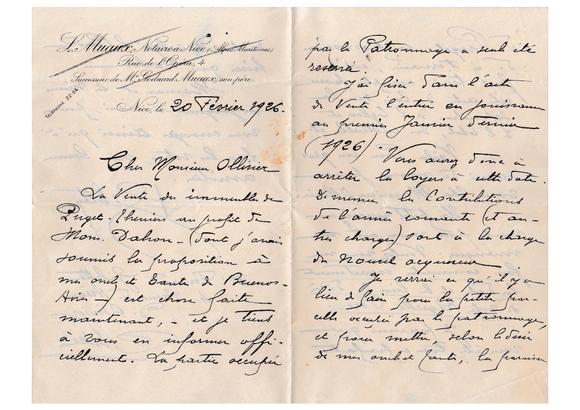 L. Muaux, Notaire à Nice (Alpes Maritimes)
Rue de l'Opéra, 4
Successeur de Me Édouard Muaux, son père
Nice, le 20 Février 1926.
Cher Monsieur Ollivier
La Vente des immeubles de
Puget-Théniers au profit de
Mons. Dahon — (dont j'avais
soumis la proposition à
mes oncle et tante de Buenos-
Aires —) est chose faite
maintenant, — et je tiens
à vous en informer offi-
ciellement. La partie occupée
par le Patronnage a seule été
réservée.
J'ai fixé dans l'acte
de Vente l'entrée en jouissance
au premier Janvier dernier
(1926) — Vous aurez donc à
arrêter les loyers à cette date.
De même les Contributions
de l'année courante (et au-
tres charges) sont à la charge
du nouvel acquéreur.
Je verrai ce qu'il y a
lieu de faire pour la petite par-
celle occupée par le patronnage,
et pour mettre, selon le désir
de mes oncle et tante, la paroisse